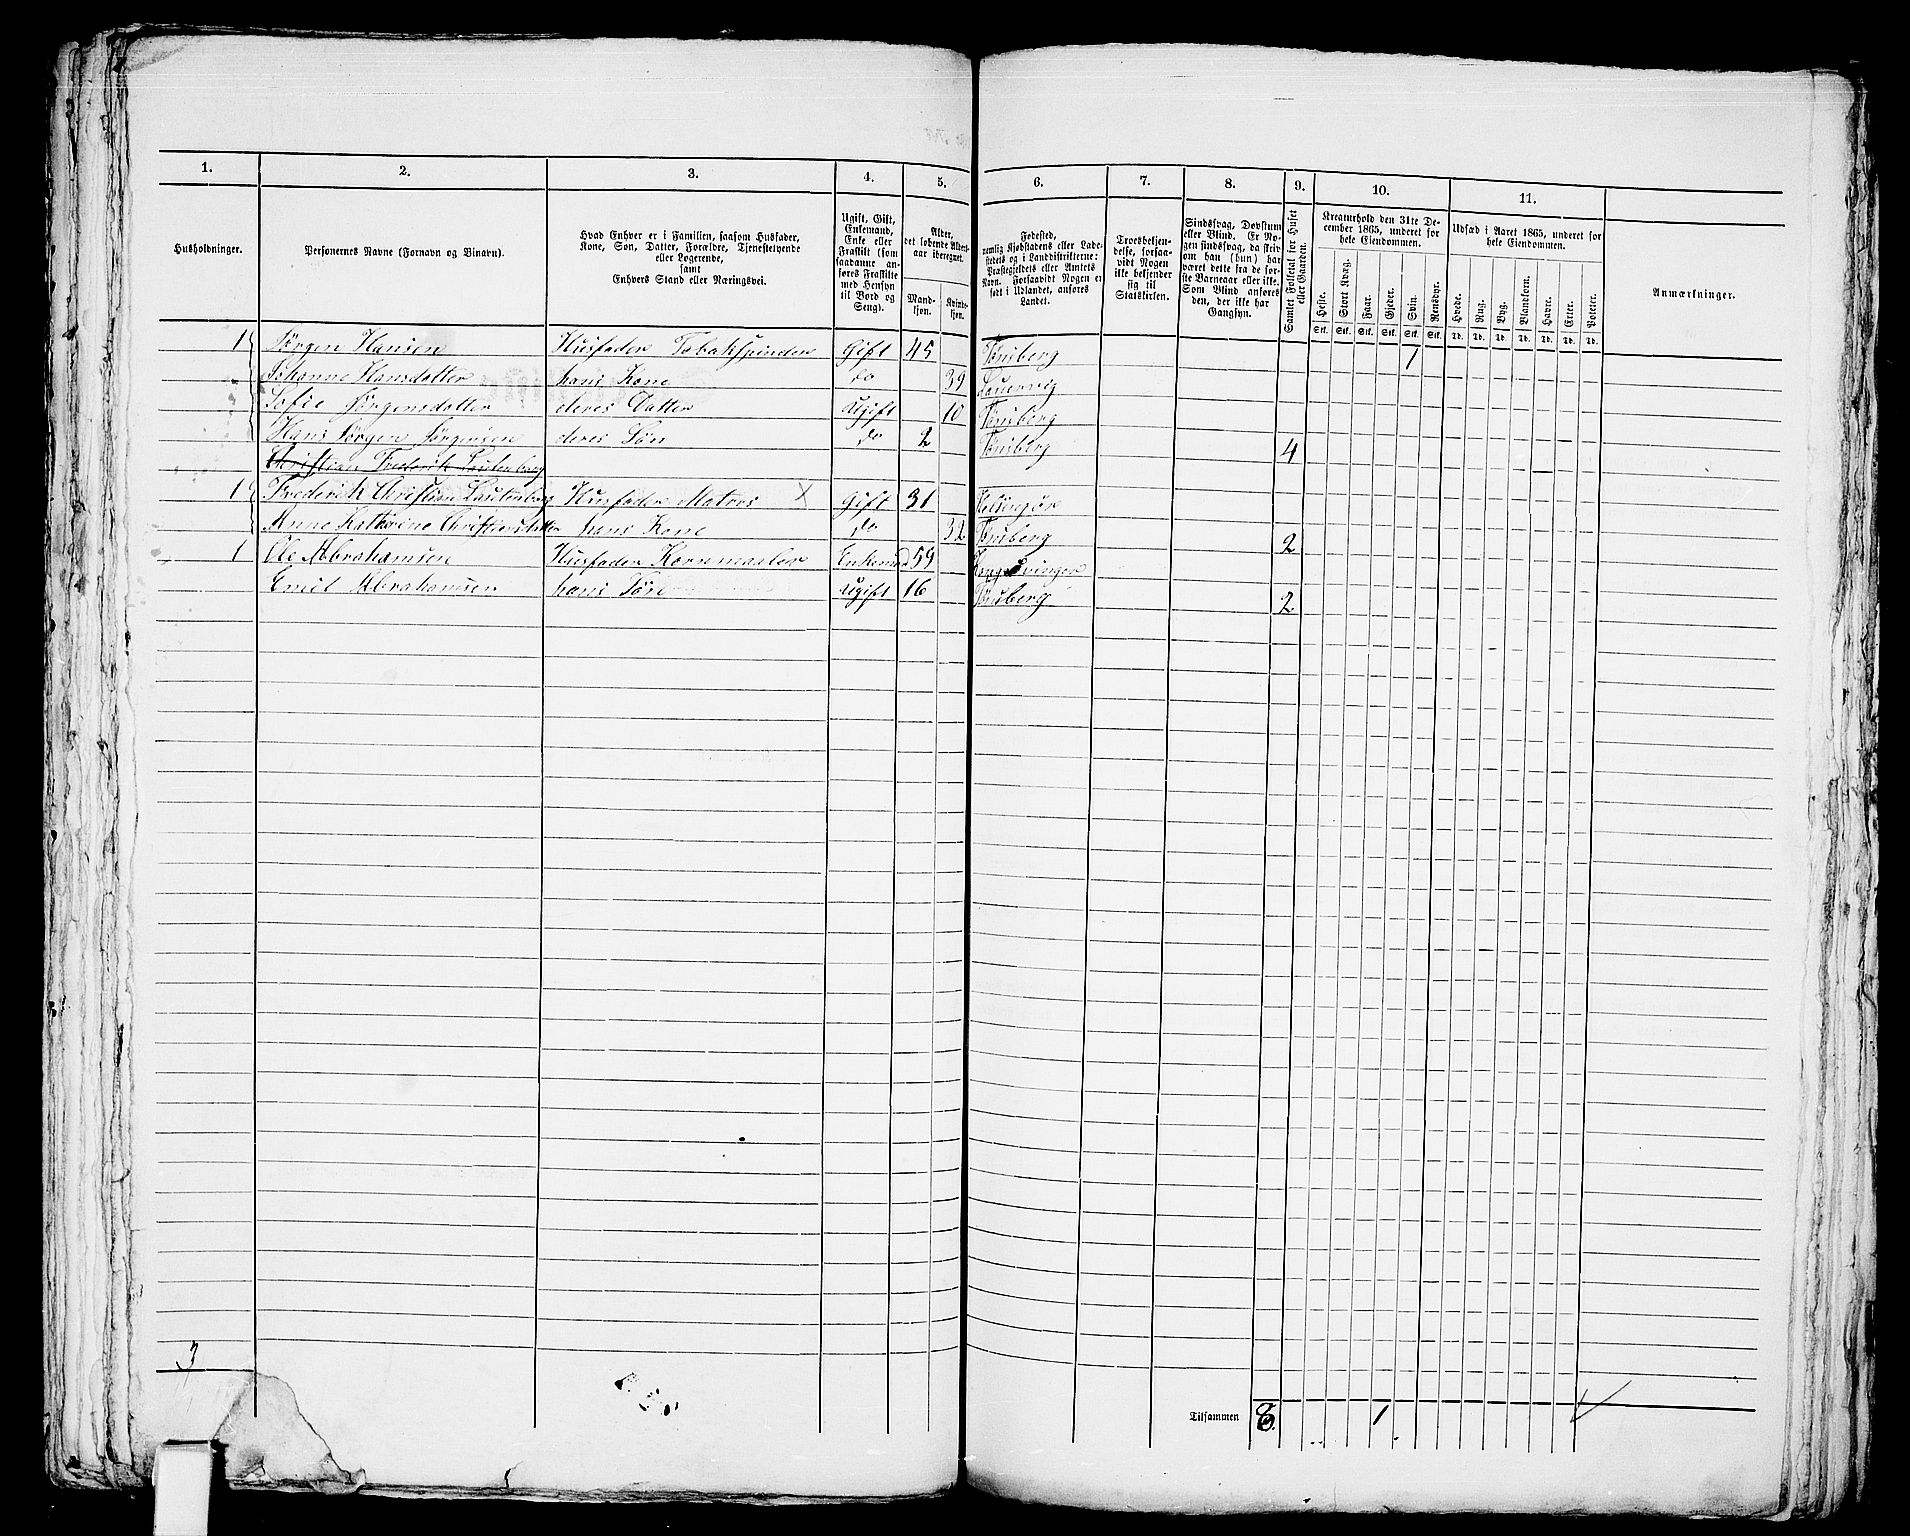 1. 2. 3. 4. 5. 6. 7. 8. 9. 10. 11.
Husholdninger.
Personernes Navne (Fornavn og Binavn).
Hvad Enhver er i Familien, saasom Husfader,
Kone, Søn, Datter, Forældre, Tjenestetyende
eller Logerende,
samt
Enhvers Stand eller Næringsvei.
Ugift, Gift,
Enkemand,
Enke eller
Fraskilt (som
saadanne an-
føres Fraskilte
med Hensyn
til Bord og
Seng).
Alder,
det løbende Alders-
aar iberegnet.
Mand-
kjøn.
Kvinde-
kjøn.
Fødested,
nemlig Kjøbstadens eller Lade-
stedets og i Landdistrikterne:
Præstegjeldets eller Amtets
Navn. Forsaavidt Nogen er
født i Udlandet, anføres
Landet.
Troesbekjen-
delse, forsaa-
vidt Nogen
ikke bekjender
sig til
Statskirken.
Sindssvag, Døvstum
eller Blind. Er No-
gen sindssvag, da skriv
om han (hun) har
været dette fra de før-
ste Barneaar eller ikke.
Som Blind anføres
den, der ikke har
Gangsyn.
Samlet Folketal for Huset
eller Gaarden.
Kreaturhold den 31te De-
cember 1865, underet for
hele Eiendommen.
Heste. Stort Kvæg. Faar. Gjeder. Svin. Rensdyr.
Stk. Stk. Stk. Stk. Stk. Stk.
Udsæd i Aaret 1865, underet for
hele Eiendommen.
Hvede. Rug. Byg. Blandkorn. Havre. Erter. Poteter.
Td. Td. Td. Td. Td. Td. Td.
Anmærkninger.
1 Jørgen Hansen Husfader Tobakspinder Gift 45 Tønsberg 1
Johanne Hansdatter hans Kone do 39 Laurvig
Sofie Jørgensdatter deres Datter Ugift 10 Tønsberg
Hans Jørgen Jørgensen deres Søn do 2 Tønsberg 4
Christian Frederik Lautenberg
1 Frederik Christian Lautenberg Husfader Matros X Gift 31 Helsingør
Anne Kathrine Christiensdatter hans Kone do 32 Tønsberg 2
1 Ole Abrahamsen Husfader Kornmaaler Enkemd 59 Kongsvinger
Emil Abrahamsen hans Søn Ugift 16 Tønsberg 2
3
Tilsammen 8. 1